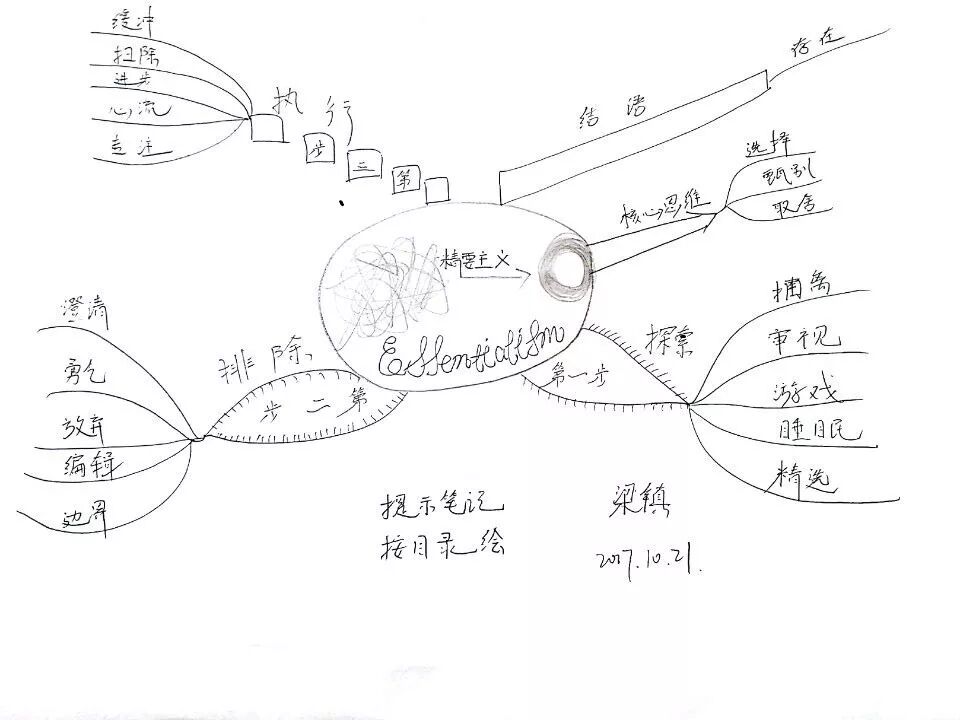 精要主义
Essentialism
核心思维
选择
甄别
取舍
第一步
探索
抽离
审视
游戏
睡眠
精选
第二步
排除
澄清
勇气
放弃
编辑
边界
第三步
执行
缓冲
扫除
进步
心流
专注
结语
存在
提示笔记
按目录绘
梁镇
2017.10.21.